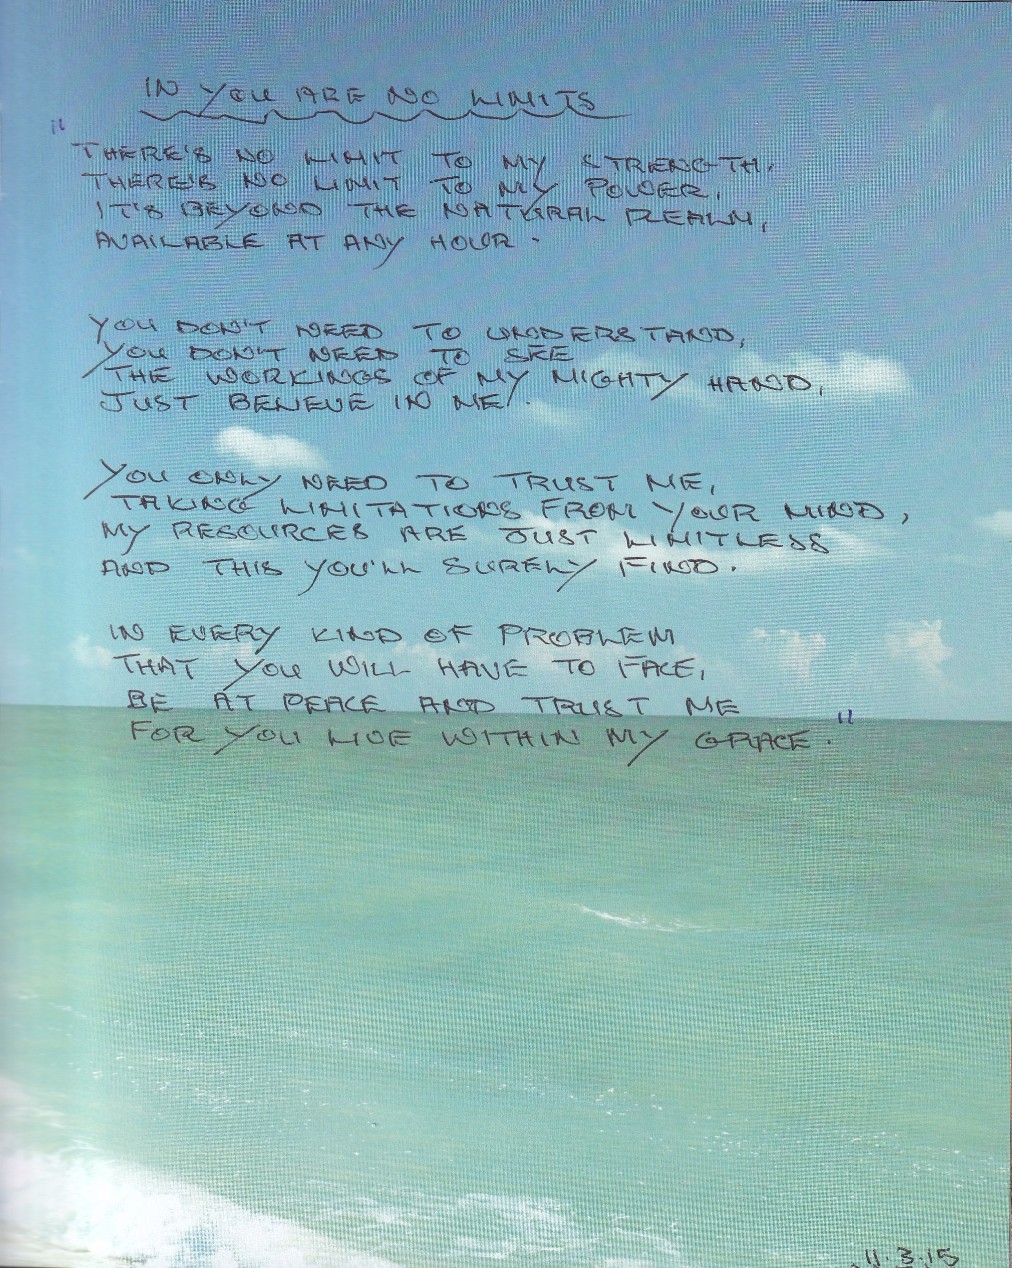 IN YOU ARE NO LIMITS
"THERE'S NO LIMIT TO MY STRENGTH,
THERE'S NO LIMIT TO MY POWER,
IT'S BEYOND THE NATURAL REALM,
AVAILABLE AT ANY HOUR.
YOU DON'T NEED TO UNDERSTAND,
YOU DON'T NEED TO SEE
THE WORKINGS OF MY MIGHTY HAND,
JUST BELIEVE IN ME!.
YOU ONLY NEED TO TRUST ME,
TAKING LIMITATIONS FROM YOUR MIND,
MY RESOURCES ARE JUST LIMITLESS
AND THIS YOU'LL SURELY FIND.
IN EVERY KIND OF PROBLEM
THAT YOU WILL HAVE TO FACE,
BE AT PEACE AND TRUST ME
FOR YOU LIVE WITHIN MY GRACE."
11.3.15